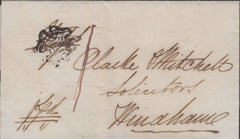 Clarke & Mitchell
Solicitors
Windham